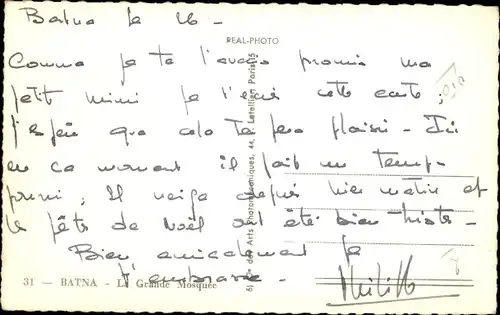 Batna le 26 -
REAL-PHOTO
Comme je te l'avais promis ma
petit mimi je t'envoi cette carte,
j'espère que cela te fera plaisir - Ici
en ce moment il fait un temps
pourri, Il neige depuis hier matin et
les fêtes de Noël ont été bien triste -
Bien amicalement je
t'embrasse -
31 — BATNA - La Grande Mosquée
des Arts Photomécaniques, 44, r. Letellier Paris-15